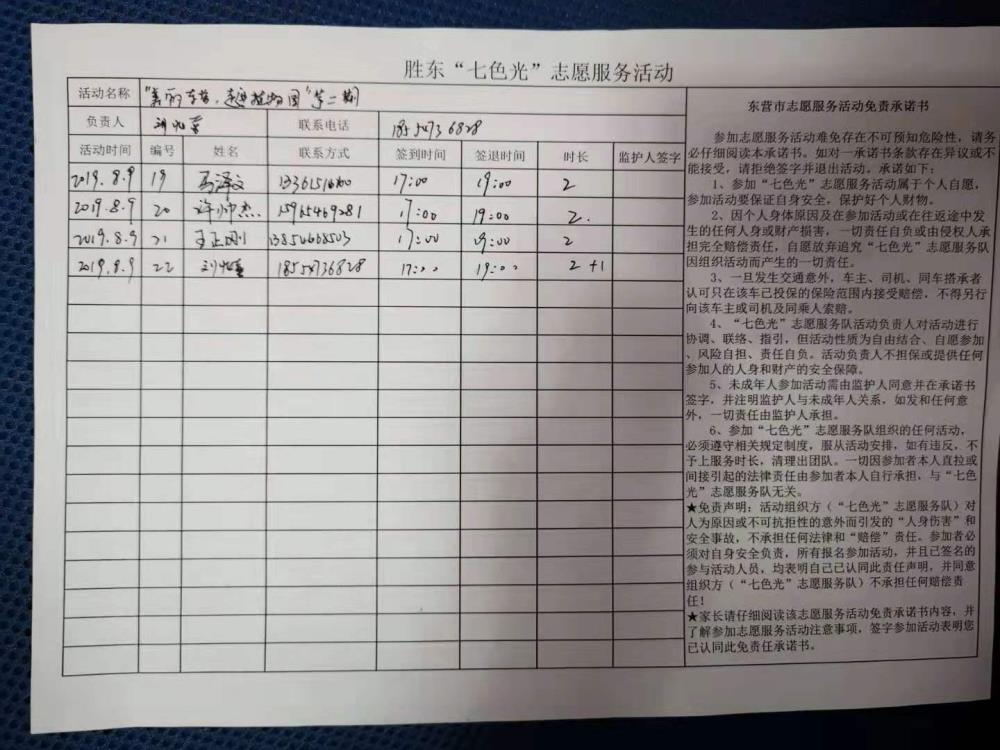 胜东“七色光”志愿服务活动
活动名称 “美丽东营，走进植物园”第二期
负责人 联系电话 18554736828
活动时间 编号 姓名 联系方式 签到时间 签退时间 时长 监护人签字
2019.8.9 19 马泽文 17:00 19:00 2
2019.8.9 20 许帅杰 15965469281 17:00 19:00 2.
2019.8.9 21 王正刚 13854668503 17:00 19:00 2
2019.8.9 22 18554736828 17:00 19:00 2 +1
东营市志愿服务活动免责承诺书
参加志愿服务活动难免存在不可预知危险性，请务
必仔细阅读本承诺书。如对一承诺书条款存在异议或不
能接受，请拒绝签字并退出活动。承诺如下：
1、参加“七色光”志愿服务活动属于个人自愿，
参加活动要保证自身安全，保护好个人财物。
2、因个人身体原因及在参加活动或在往返途中发
生的任何人身或财产损害，一切责任自负或由侵权人承
担完全赔偿责任，自愿放弃追究“七色光”志愿服务队
因组织活动而产生的一切责任。
3、一旦发生交通意外，车主、司机、同车搭承者
认可只在该车已投保的保险范围内接受赔偿，不得另行
向该车主或司机及同乘人索赔。
4、“七色光”志愿服务队活动负责人对活动进行
协调、联络、指引，但活动性质为自由结合、自愿参加
、风险自担、责任自负。活动负责人不担保或提供任何
参加人的人身和财产的安全保障。
5、未成年人参加活动需由监护人同意并在承诺书
签字，并注明监护人与未成年人关系，如发和任何意
外，一切责任由监护人承担。
6、参加“七色光”志愿服务队组织的任何活动，
必须遵守相关规定制度，服从活动安排，如有违反，不
予上服务时长，清理出团队。一切因参加者本人直拉或
间接引起的法律责任由参加者本人自行承担，与“七色
光”志愿服务队无关。
★免责声明：活动组织方（“七色光”志愿服务队）对
人为原因或不可抗拒性的意外而引发的“人身伤害”和
安全事故，不承担任何法律和“赔偿”责任。参加者必
须对自身安全负责，所有报名参加活动，并且已签名的
参与活动人员，均表明自己已认同此责任声明，并同意
组织方（“七色光”志愿服务队）不承担任何赔偿责
任！
★家长请仔细阅读该志愿服务活动免责承诺书内容，并
了解参加志愿服务活动注意事项，签字参加活动表明您
已认同此免责任承诺书。